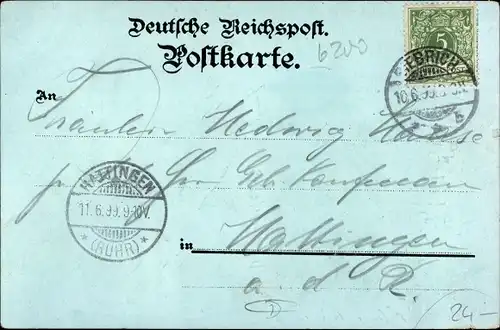 Deutsche Reichspost.
Postkarte.
6200
5
BIEBRICH
10.6.99.
5
An
Fräulein Hedwig
HATTINGEN
11.6.99.9-10V.
* (RUHR) *
in Hattingen
a d R
24-